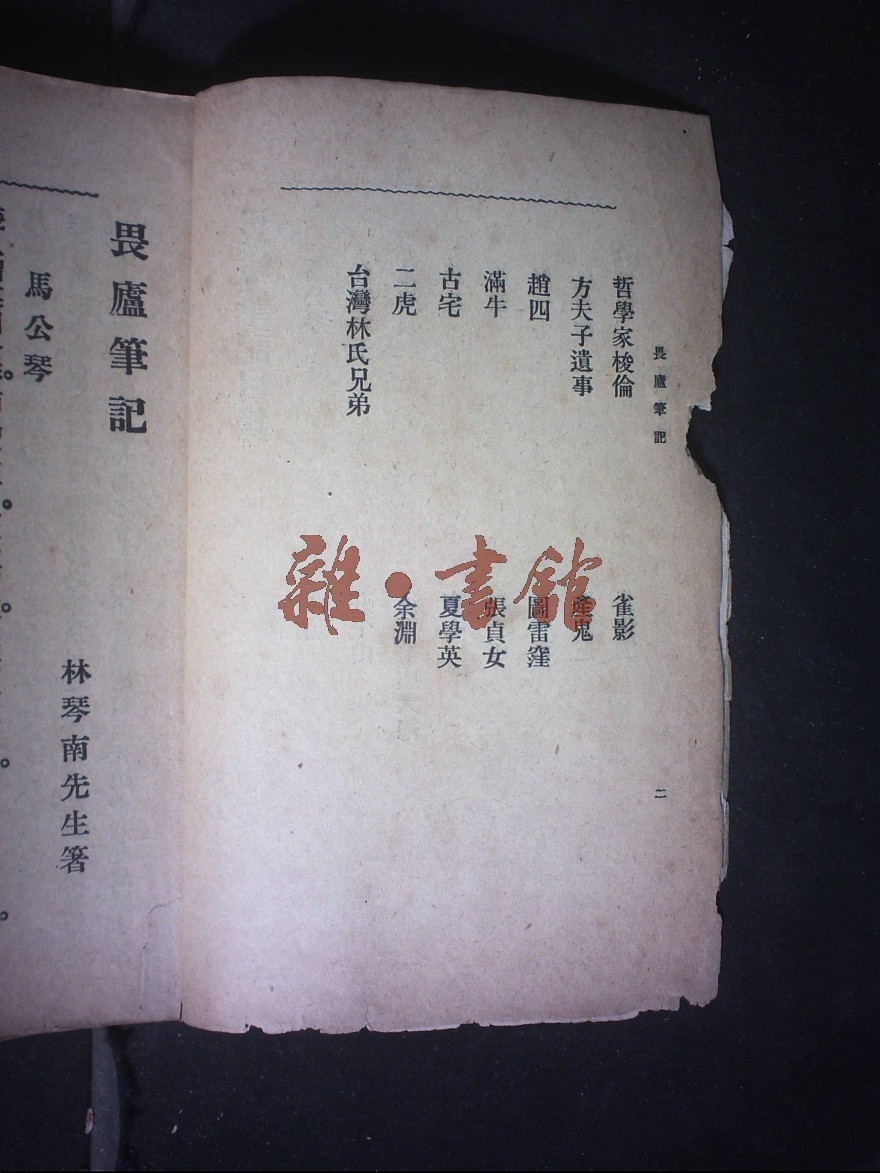 畏廬筆記
二
哲學家梭倫
雀影
方夫子遺事
產鬼
趙四
圖雷窪
滿牛
張貞女
古宅
夏學英
二虎
余淵
台灣林氏兄弟
雜·書館
畏廬筆記
林琴南先生箸
馬公琴